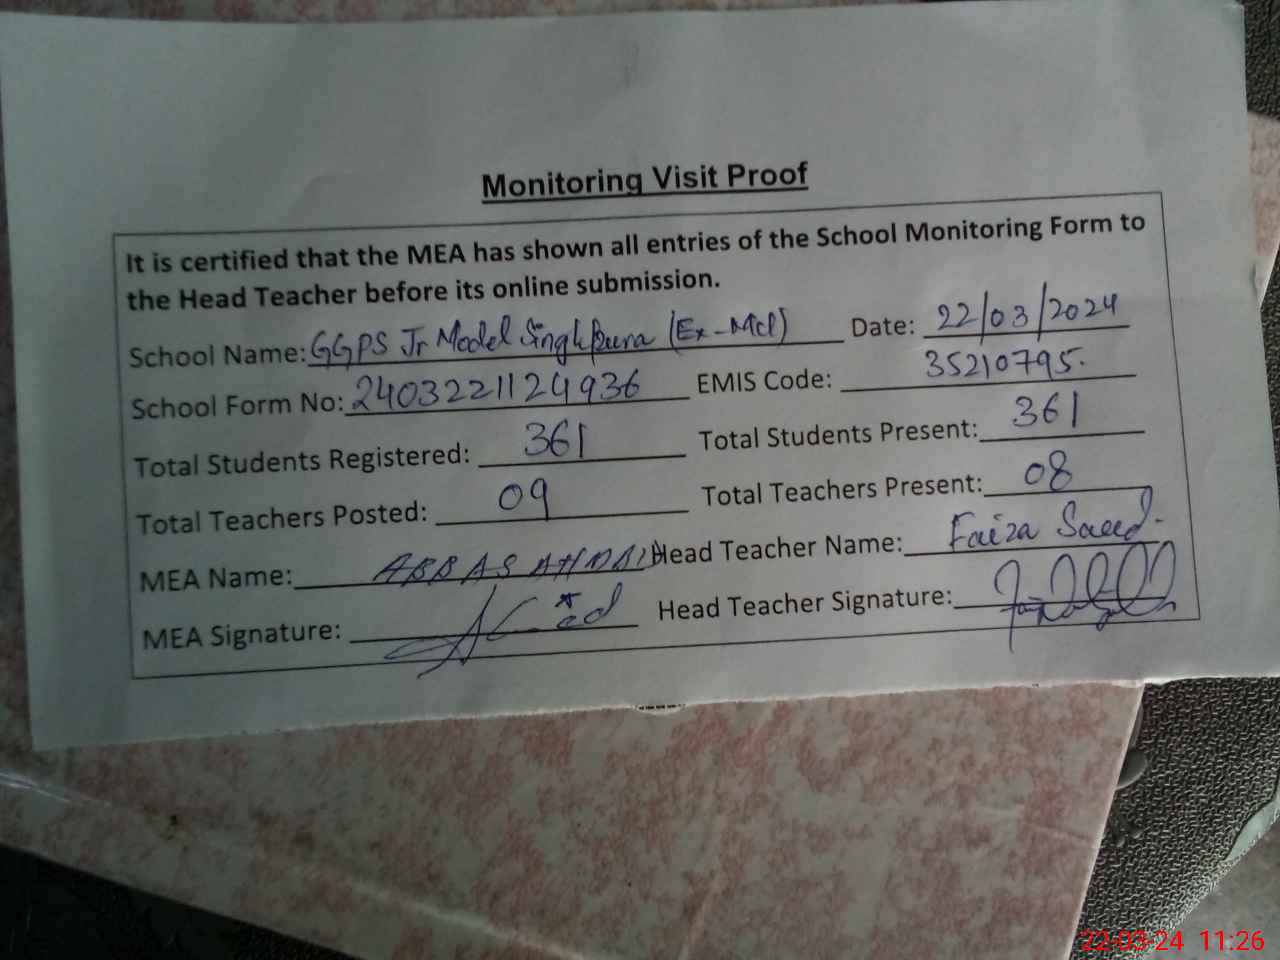 Monitoring Visit Proof
It is certified that the MEA has shown all entries of the School Monitoring Form to
the Head Teacher before its online submission.
School Name: GGPS Jr Model Singhpura (Ex-Mcl) Date: 22/03/2024
School Form No: 2403221124936 EMIS Code: 35210795.
Total Students Registered: 361 Total Students Present: 361
Total Teachers Posted: 09 Total Teachers Present: 08
MEA Name: ABBAS Head Teacher Name: Faiza Saeed.
MEA Signature: Head Teacher Signature:
22-03-24 11:26